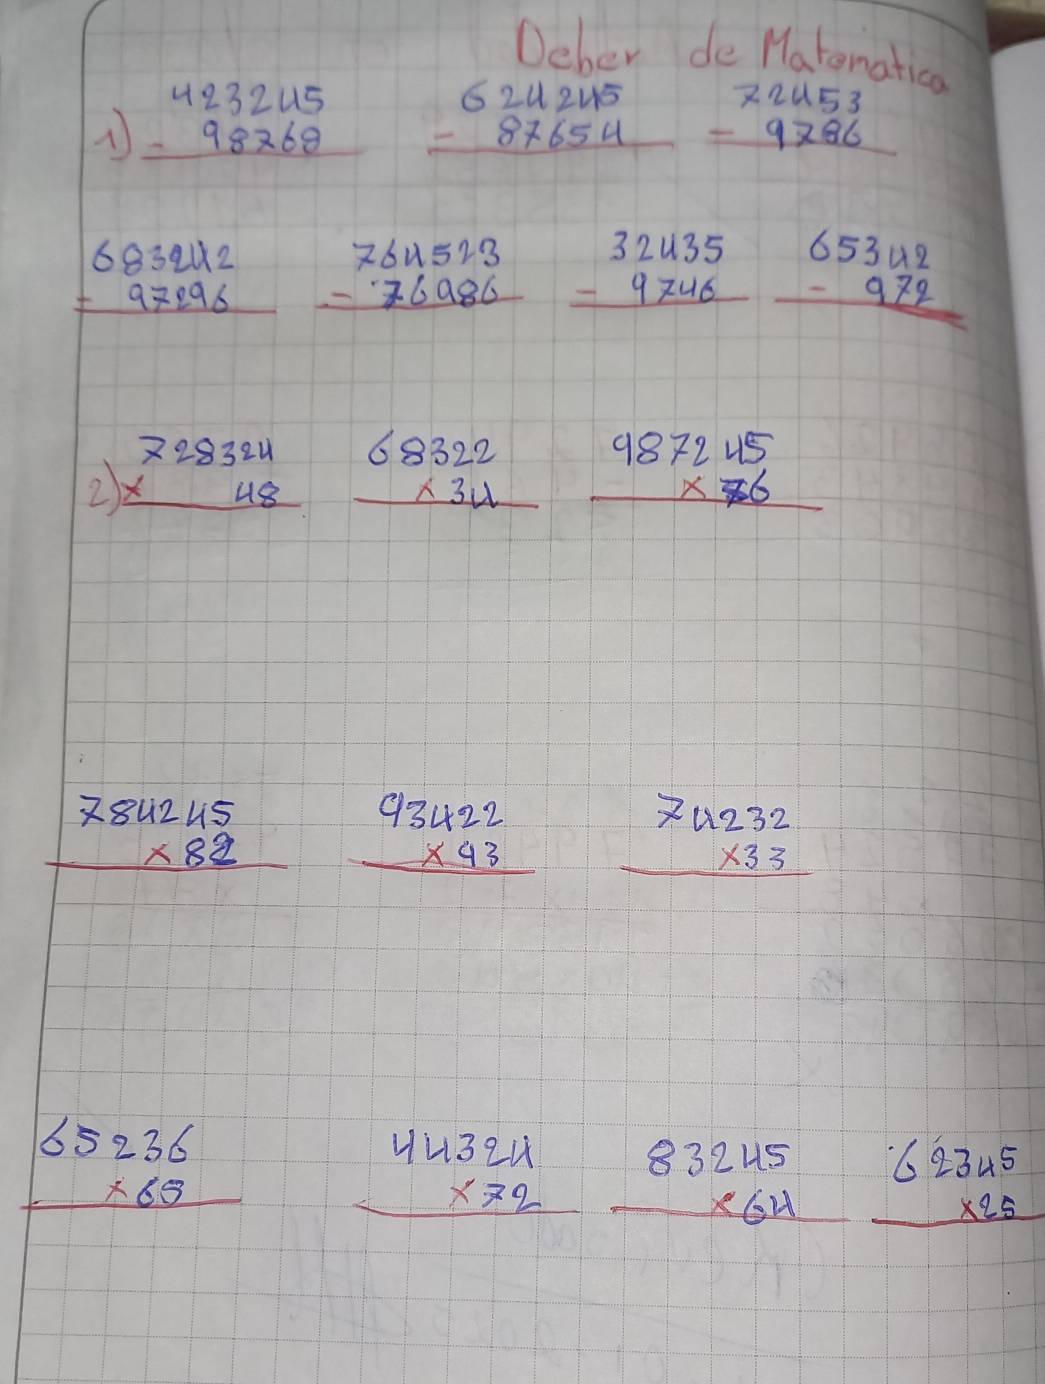 Deber de Matematica
1) 423245 624245 72453
- 98768 - 87654 - 9786
683242 764523 32435 65342
- 97296 - 76986 - 9746 - 972
728324 68322 987245
2) x 48 x 34 x 76
784245 93422 74232
x 82 x 93 x 33
65236 44324 83245 62345
x 65 x 72 x 64 x 25